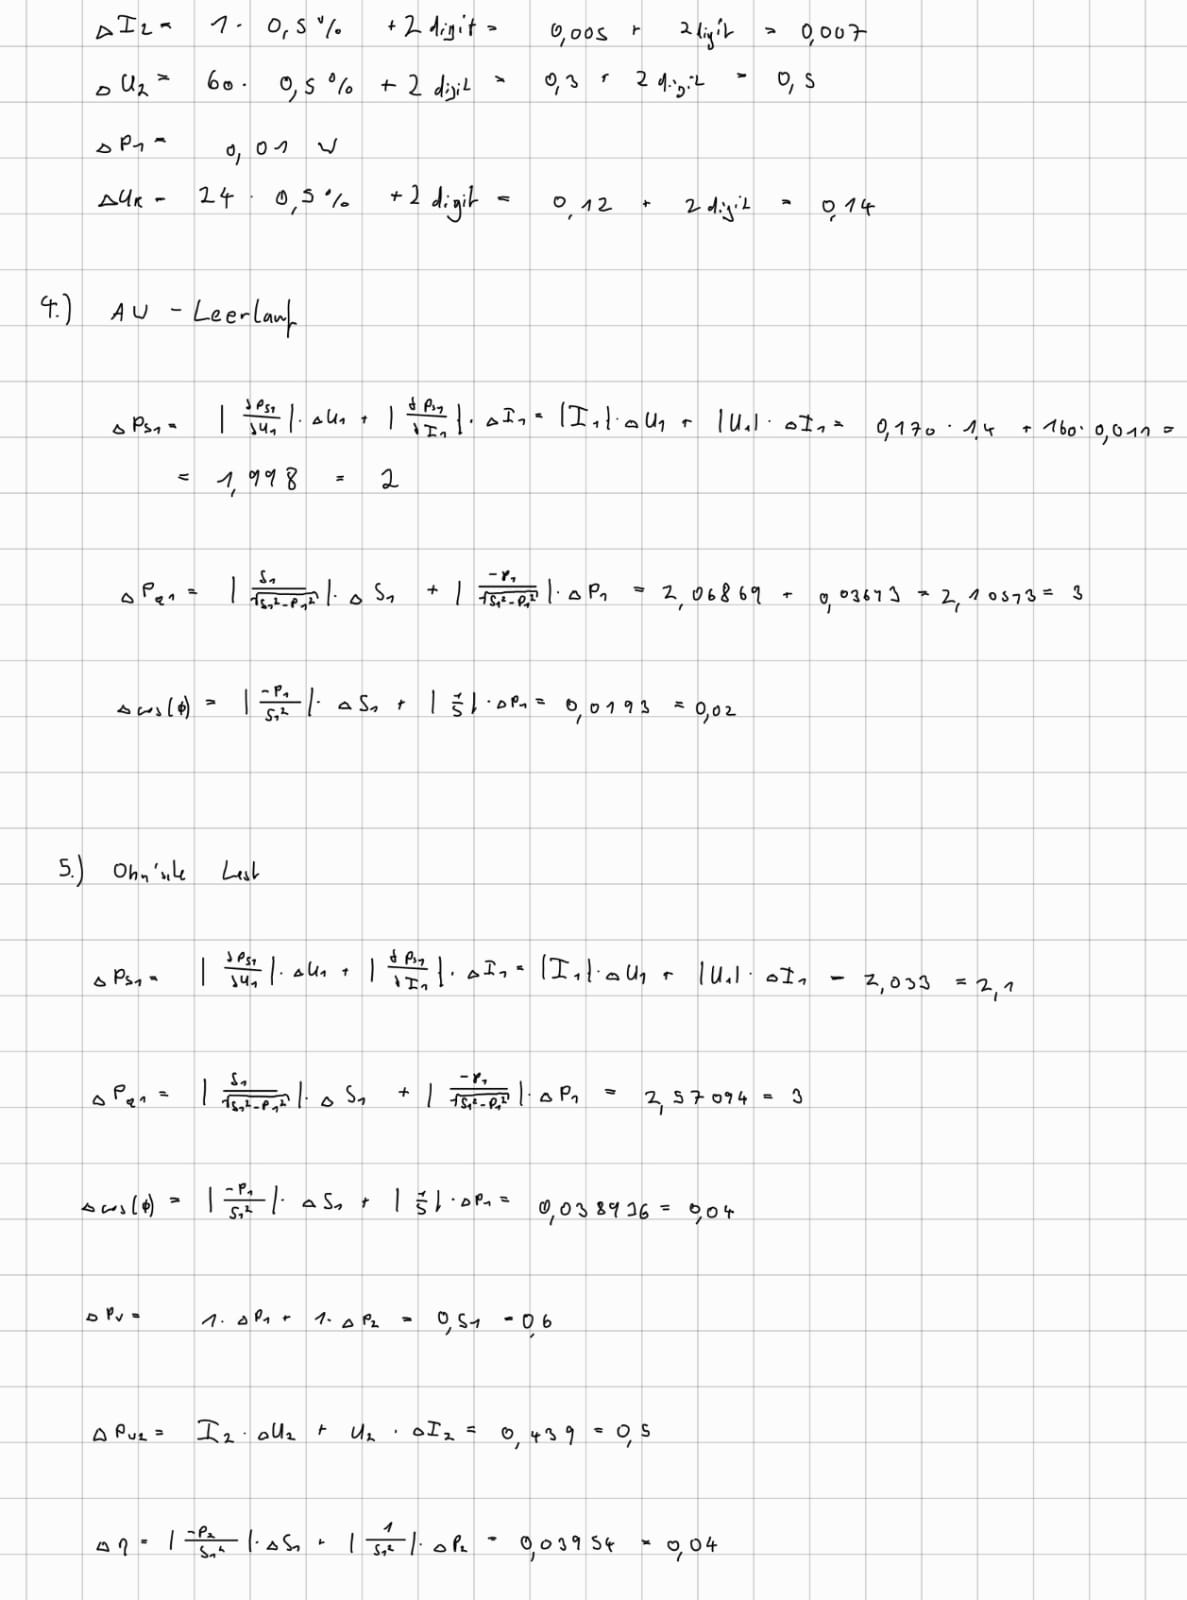 ΔI₂ = 1 · 0,5 % + 2 digit = 0,005 + 2 digit = 0,007
ΔU₂ = 60 · 0,5 % + 2 digit = 0,3 + 2 digit = 0,5
ΔP₁ = 0,01 W
ΔU_R = 24 · 0,5 % + 2 digit = 0,12 + 2 digit = 0,14
4.) AU - Leerlauf
ΔP_S1 = |∂P_S1/∂U₁| · ΔU₁ + |∂P_S1/∂I₁| · ΔI₁ = |I₁| · ΔU₁ + |U₁| · ΔI₁ = 0,170 · 1,4 + 160 · 0,011 =
= 1,998 = 2
ΔP_q1 = |S₁/√(S₁²-P₁²)| · ΔS₁ + |-P₁/√(S₁²-P₁²)| · ΔP₁ = 2,06869 + 0,03673 = 2,10573 = 3
Δcos(ϕ) = |-P₁/S₁²| · ΔS₁ + |1/S| · ΔP₁ = 0,0193 = 0,02
5.) Ohm'sche Last
ΔP_S1 = |∂P_S1/∂U₁| · ΔU₁ + |∂P_S1/∂I₁| · ΔI₁ = |I₁| · ΔU₁ + |U₁| · ΔI₁ = 2,033 = 2,1
ΔP_q1 = |S₁/√(S₁²-P₁²)| · ΔS₁ + |-P₁/√(S₁²-P₁²)| · ΔP₁ = 2,57094 = 3
Δcos(ϕ) = |-P₁/S₁²| · ΔS₁ + |1/S| · ΔP₁ = 0,038936 = 0,04
ΔP_V = 1 · ΔP₁ + 1 · ΔP₂ = 0,51 = 0,6
ΔP_V2 = I₂ · ΔU₂ + U₂ · ΔI₂ = 0,439 = 0,5
Δη = |-P₂/S₁²| · ΔS₁ + |1/S₁²| · ΔP₂ = 0,03954 = 0,04